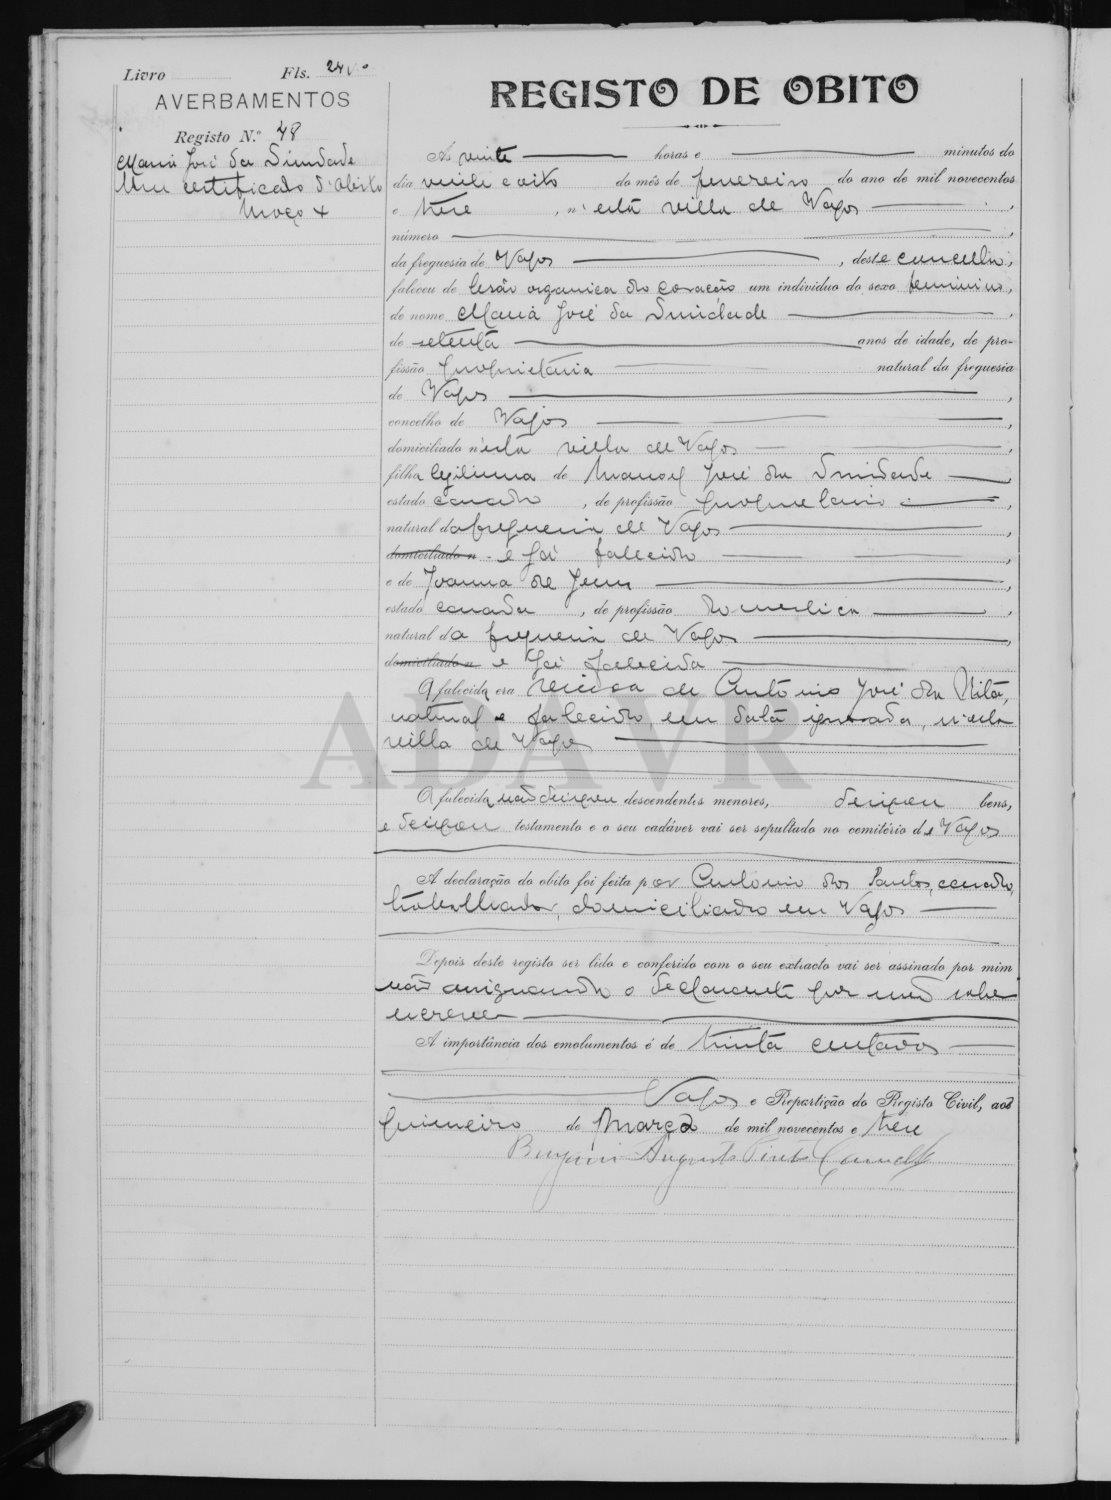 Livro Fls. 24 vo
AVERBAMENTOS
Registo N.º 48
Maria José da Trindade
certificado d'obito
Março
REGISTO DE OBITO
As vinte horas e minutos do
dia vinte e oito do mês de fevereiro do ano de mil novecentos
e treze, n'esta villa de Vagos
número
da freguesia de Vagos, deste concelho,
faleceu de lesão organica do coração um individuo do sexo feminino,
de nome Maria José da Trindade
de setenta anos de idade, de pro-
fissão proprietaria natural da freguesia
de Vagos,
concelho de Vagos,
domiciliado n'esta villa de Vagos,
filha legitima de Manoel José da Trindade,
estado casado, de profissão proprietario,
natural da freguesia de Vagos,
domiciliado n e já falecido,
e de Joanna de Jesus,
estado casada, de profissão domestica,
natural da freguesia de Vagos,
domiciliada n e já falecida
A falecida era viuva de Antonio José da
natural e falecido, em data ignorada, n'esta
villa de Vagos
A falecida não deixou descendentes menores, deixou bens,
e deixou testamento e o seu cadáver vai ser sepultado no cemitério de Vagos
A declaração do obito foi feita por Antonio dos Santos, casado,
trabalhador, domiciliado em Vagos
Depois deste registo ser lido e conferido com o seu extracto vai ser assinado por mim
não assignando o declarante por não saber
escrever
A importância dos emolumentos é de trinta centavos
Vagos e Repartição do Registo Civil, aos
primeiro de Março de mil novecentos e treze
Augusto
ADAVR